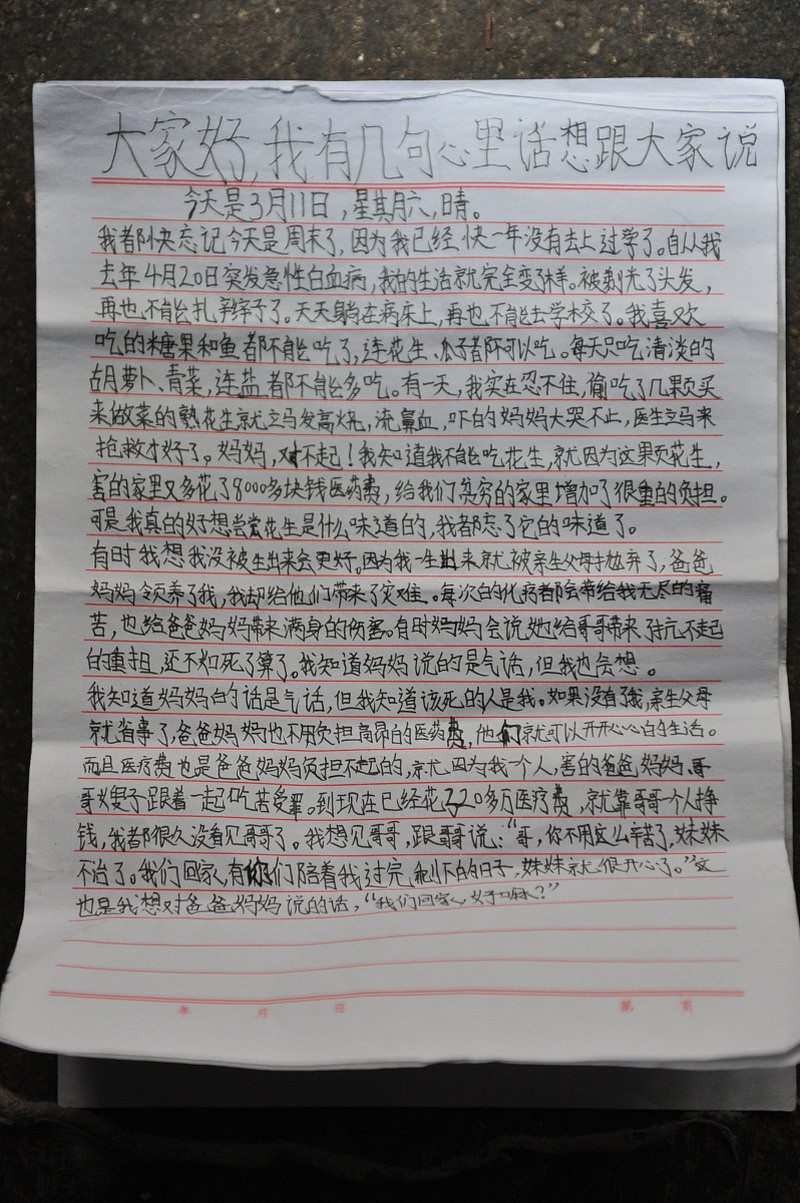 大家好,我有几句心里话想跟大家说
今天是3月11日,星期六,晴。
我都快忘记今天是周末了,因为我已经快一年没有去上过学了。自从我
去年4月20日突发急性白血病,我的生活就完全变了样。被剃光了头发,
再也不能扎辫子了。天天躺在病床上,再也不能去学校了。我喜欢
吃的糖果和鱼都不能吃了,连花生、瓜子都不可以吃。每天只吃清淡的
胡萝卜、青菜,连盐都不能多吃。有一天,我实在忍不住,偷吃了几果页买
来做菜的熟花生就立马发高烧,流鼻血,吓的妈妈大哭不止,医生立马来
抢救才好了。妈妈,对不起!我知道我不能吃花生,就因为这果页花生,
害的家里又多花了8000多块钱医药费,给我们贫穷的家里增加了很重的负担。
可是我真的好想尝尝花生是什么味道的,我都忘了它的味道了。
有时我想我没被生出来会更好。因为我一生出来就被亲生父母放弃了,爸爸
妈妈领养了我,我却给他们带来了灾难。每次的化疗都会带给我无尽的痛
苦,也给爸爸妈妈带来满身的伤害。有时妈妈会说她给哥哥带来了还不起
的重担,还不如死了算了。我知道妈妈说的是气话,但我也会想。
我知道妈妈的话是气话,但我知道该死的人是我。如果没有了我,亲生父母
就省事了,爸爸妈妈也不用负担高昂的医药费,他们就可以开开心心的生活。
而且医疗费也是爸爸妈妈负担不起的,就因为我一个人,害的爸爸妈妈、哥
哥嫂子跟着一起吃苦受罪。到现在已经花了20多万医疗费,就靠哥哥一个人挣
钱,我都很久没看见哥哥了。我想见哥哥,跟哥哥说:“哥,你不用这么辛苦了,妹妹
不治了。我们回家,有你们陪着我过完剩下的日子,妹妹就很开心了。”这
也是我想对爸爸妈妈说的话,“我们回家,好嘛?”
年 月 日 第 页